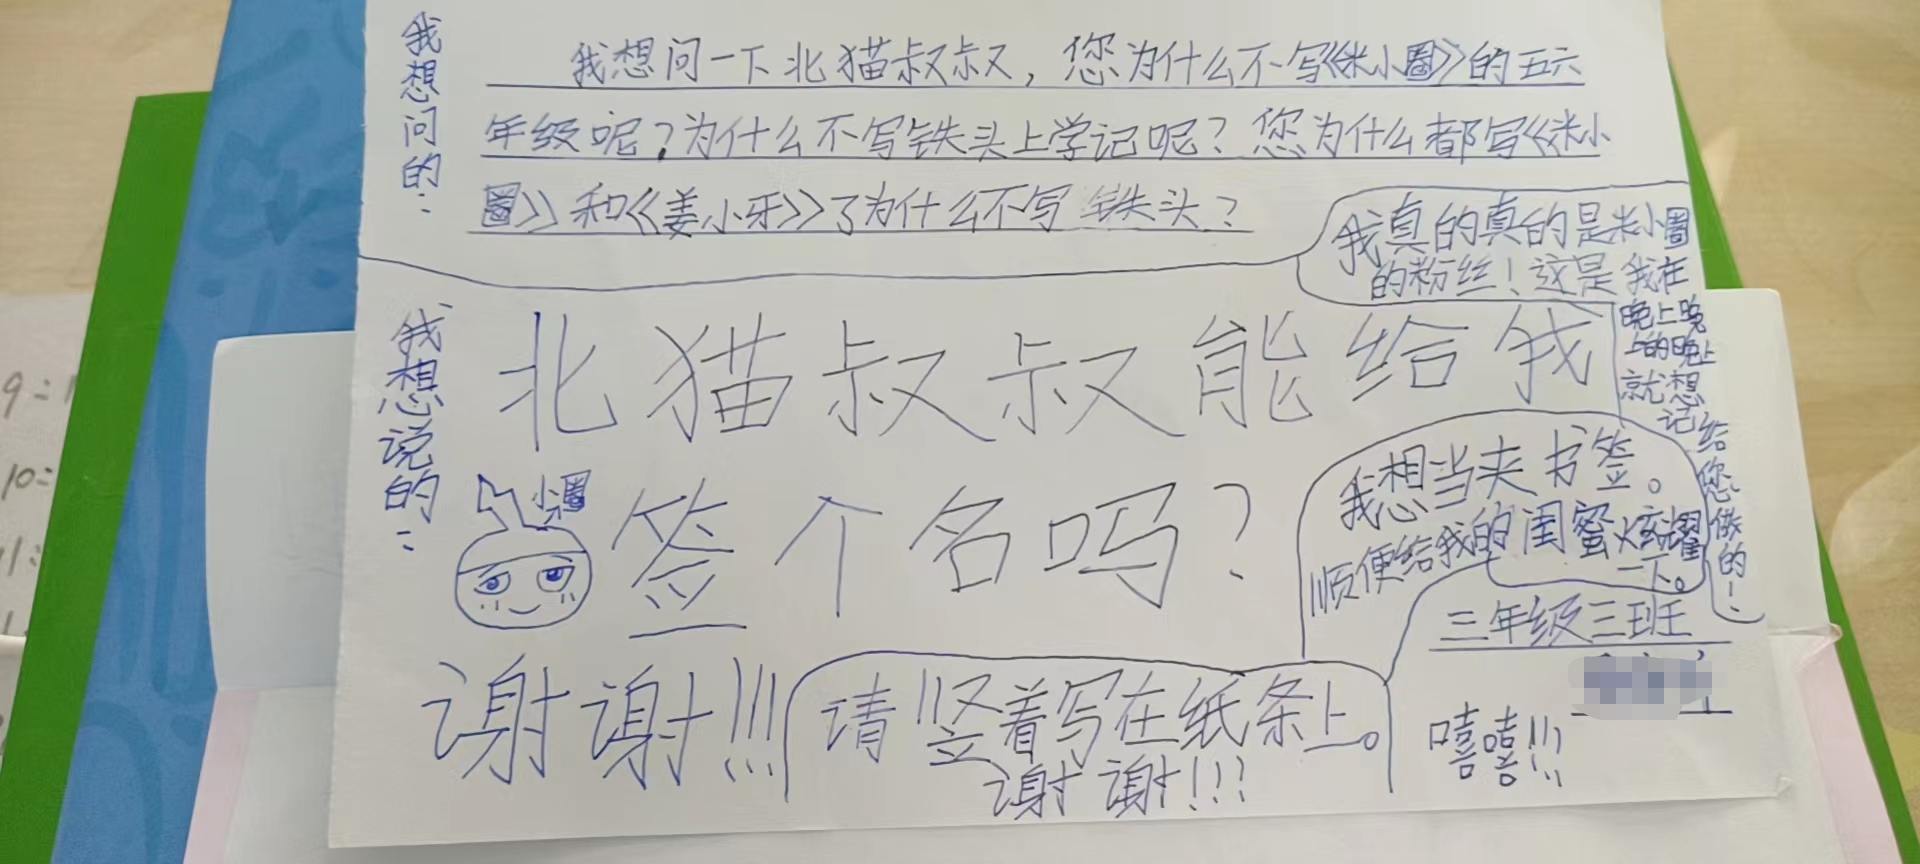 我想问的：
我想问一下北猫叔叔，您为什么不写《米小圈》的五六
年级呢？为什么不写铁头上学记呢？您为什么都写《米小
圈》和《姜小牙》了为什么不写铁头？
我真的真的是米小圈
的粉丝！这是我在
晚上晚
上的晚上
就想
记
给您做的！
我想说的：
北猫叔叔能给我
米小圈
签个名吗？
我想当夹书签。
顺便给我的闺蜜炫耀
一下。
三年级三班
谢谢!!!
请竖着写在纸条上。
谢谢!!!
嘻嘻!!!
9:
10:
11: